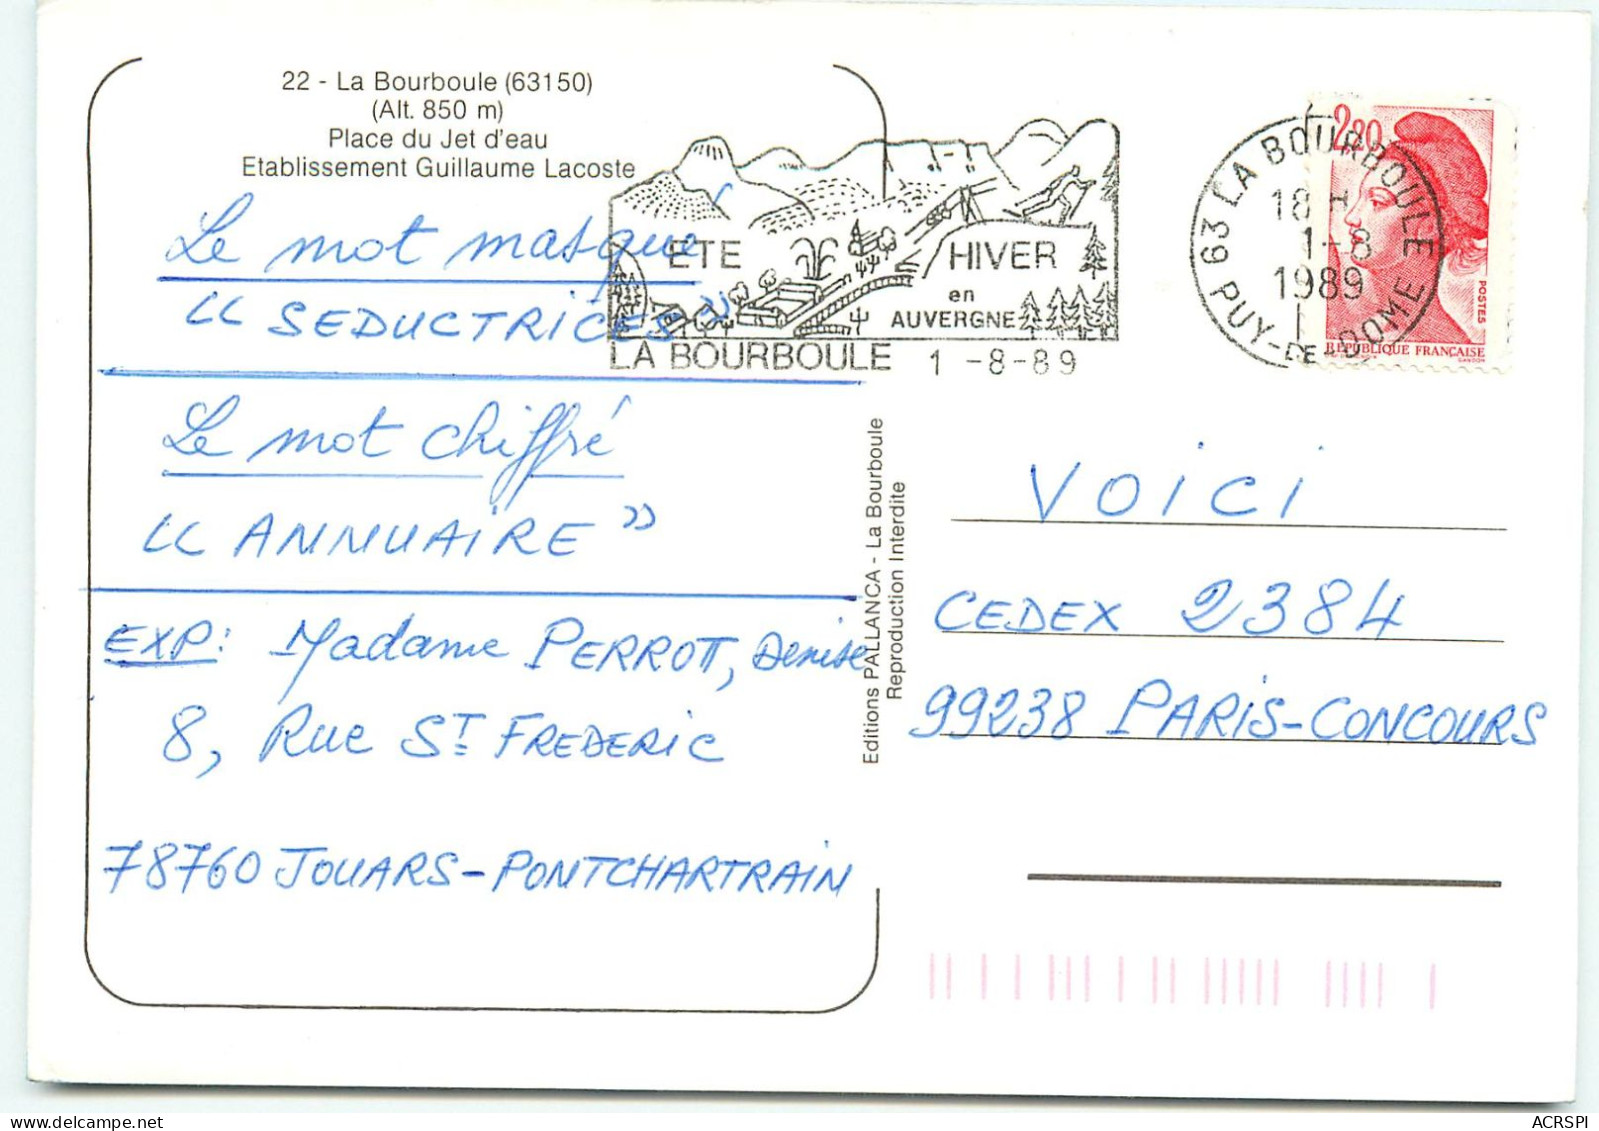 22 - La Bourboule (63150)
(Alt. 850 m)
Place du Jet d'eau
Etablissement Guillaume Lacoste
Le mot masqué
" SEDUCTRICES "
Le mot chiffré
" ANNUAIRE "
EXP: Madame PERROT, Denise
8, Rue ST FREDERIC
78760 JOUARS-PONTCHARTRAIN
ETE
HIVER
en
AUVERGNE
LA BOURBOULE 1 -8-89
63 LA BOURBOULE
18 H
1-8
1989
PUY-DE-DOME
2,20
POSTES
REPUBLIQUE FRANÇAISE
GANDON
Editions PALLANCA - La Bourboule
Reproduction Interdite
VOICI
CEDEX 2384
99238 PARIS-CONCOURS
ACRSPI